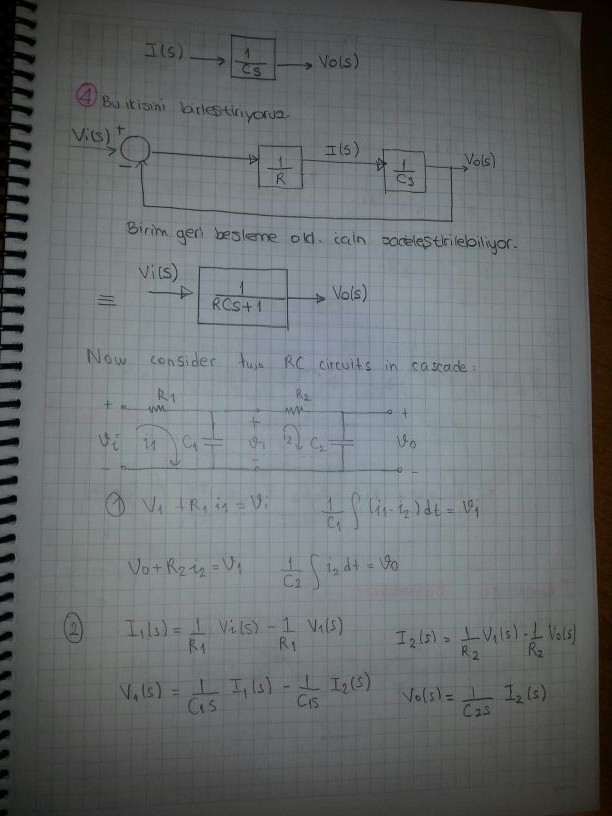 I(s) → 1/Cs → Vo(s)
④ Bu ikisini birleştiriyoruz.
Vi(s) + − 1/R I(s) 1/Cs Vo(s)
Birim geri besleme old. için sadeleştirilebiliyor.
≡ Vi(s) → 1/(RCs+1) → Vo(s)
Now consider two RC circuits in cascade:
R1 R2
+ + +
vi i1 C1 v1 i2 C2 vo
− − −
① V1 + R1 i1 = vi 1/C1 ∫ (i1-i2) dt = v1
Vo + R2 i2 = v1 1/C2 ∫ i2 dt = vo
② I1(s) = 1/R1 Vi(s) - 1/R1 V1(s) I2(s) = 1/R2 V1(s) - 1/R2 Vo(s)
V1(s) = 1/C1s I1(s) - 1/C1s I2(s) Vo(s) = 1/C2s I2(s)